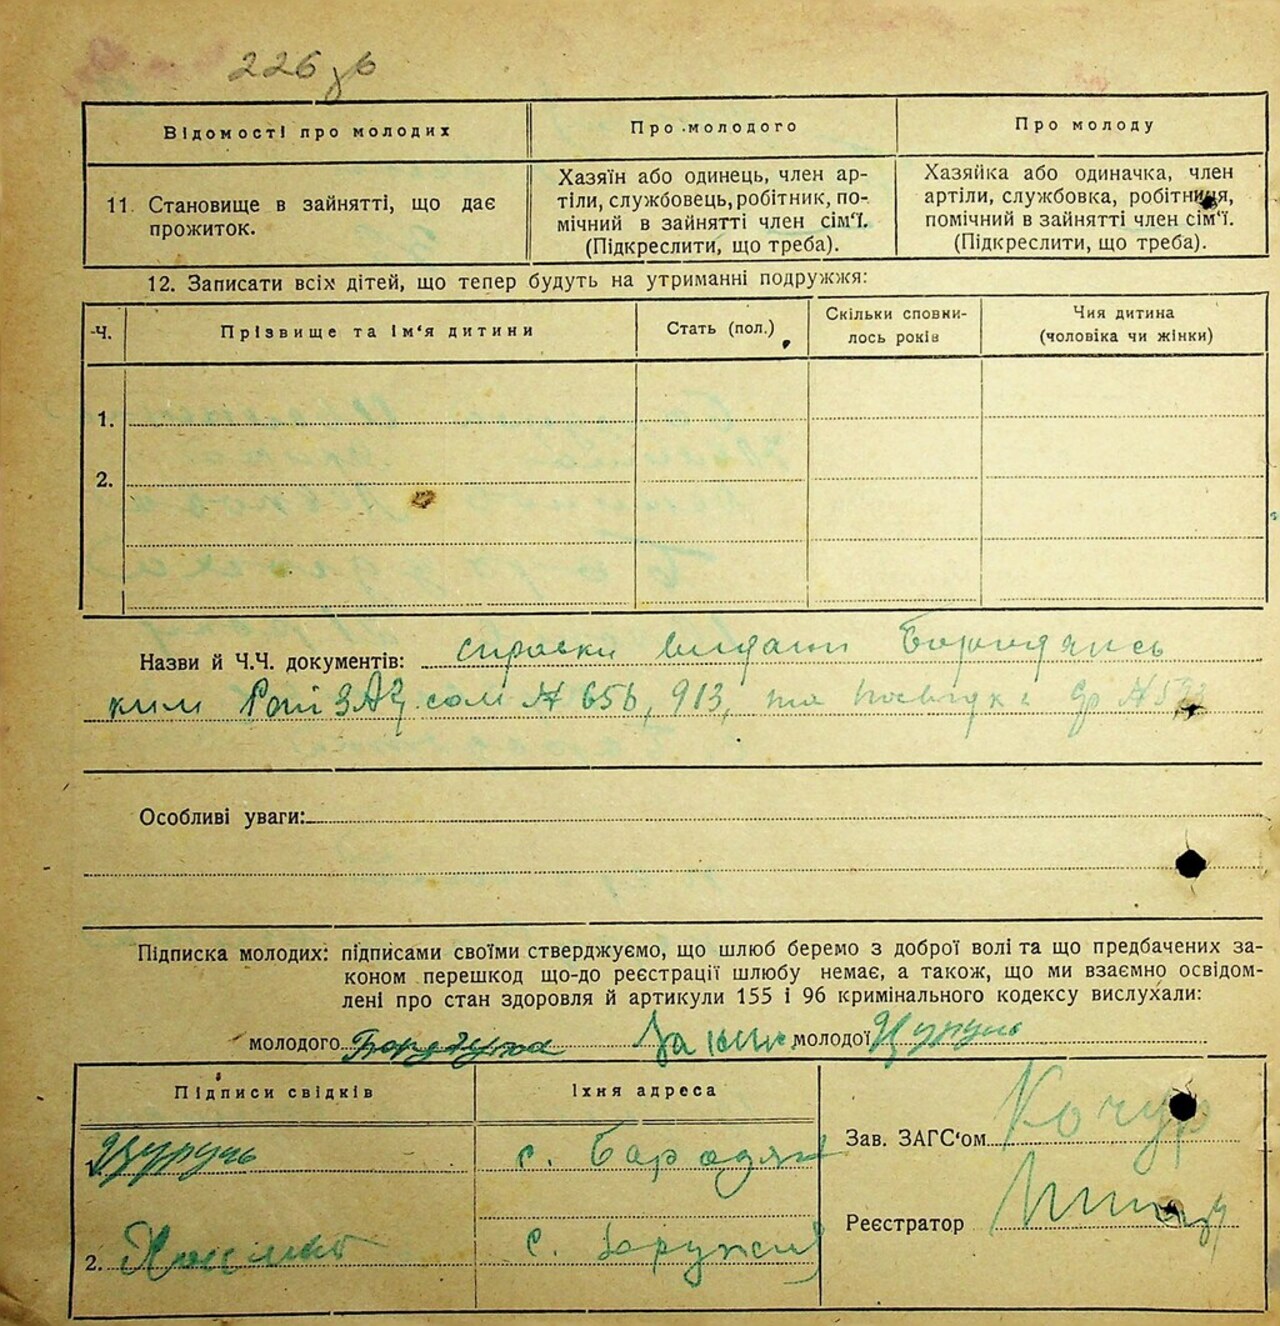 226 зв
Відомості про молодих
Про молодого
Про молоду
11. Становище в зайнятті, що дає прожиток.
Хазяїн або одинець, член ар-
тіли, службовець, робітник, по-
мічний в зайнятті член сім'ї.
(Підкреслити, що треба).
Хазяйка або одиначка, член
артіли, службовка, робітниця,
помічний в зайнятті член сім'ї.
(Підкреслити, що треба).
12. Записати всіх дітей, що тепер будуть на утриманні подружжя:
Ч.
Прізвище та ім'я дитини
Стать (пол.)
Скільки сповни-
лось років
Чия дитина
(чоловіка чи жінки)
1.
2.
Назви й Ч.Ч. документів: справки видані Бородянсь
ким Рай ЗАГсом № 656, 913, та
Особливі уваги:
Підписка молодих: підписами своїми стверджуємо, що шлюб беремо з доброї волі та що предбачених за-
коном перешкод що-до реєстрації шлюбу немає, а також, що ми взаємно освідом-
лені про стан здоров'я й артикули 155 і 96 кримінального кодексу вислухали:
молодого
молодої
Підписи свідків
Їхня адреса
с.
Зав. ЗАГС'ом Кочур
2.
с.
Реєстратор